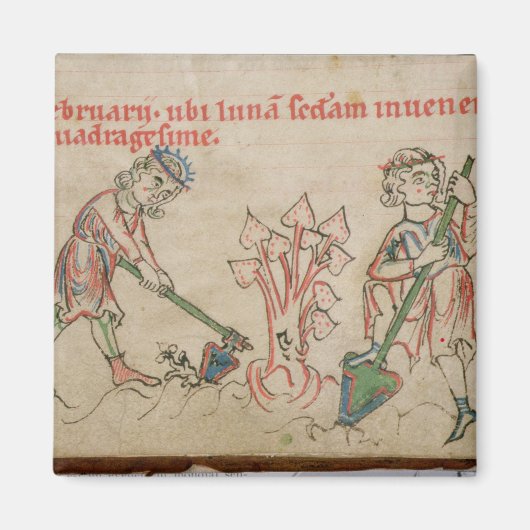 ebruarij. ubi lunā sectam inuener
uadragesime.